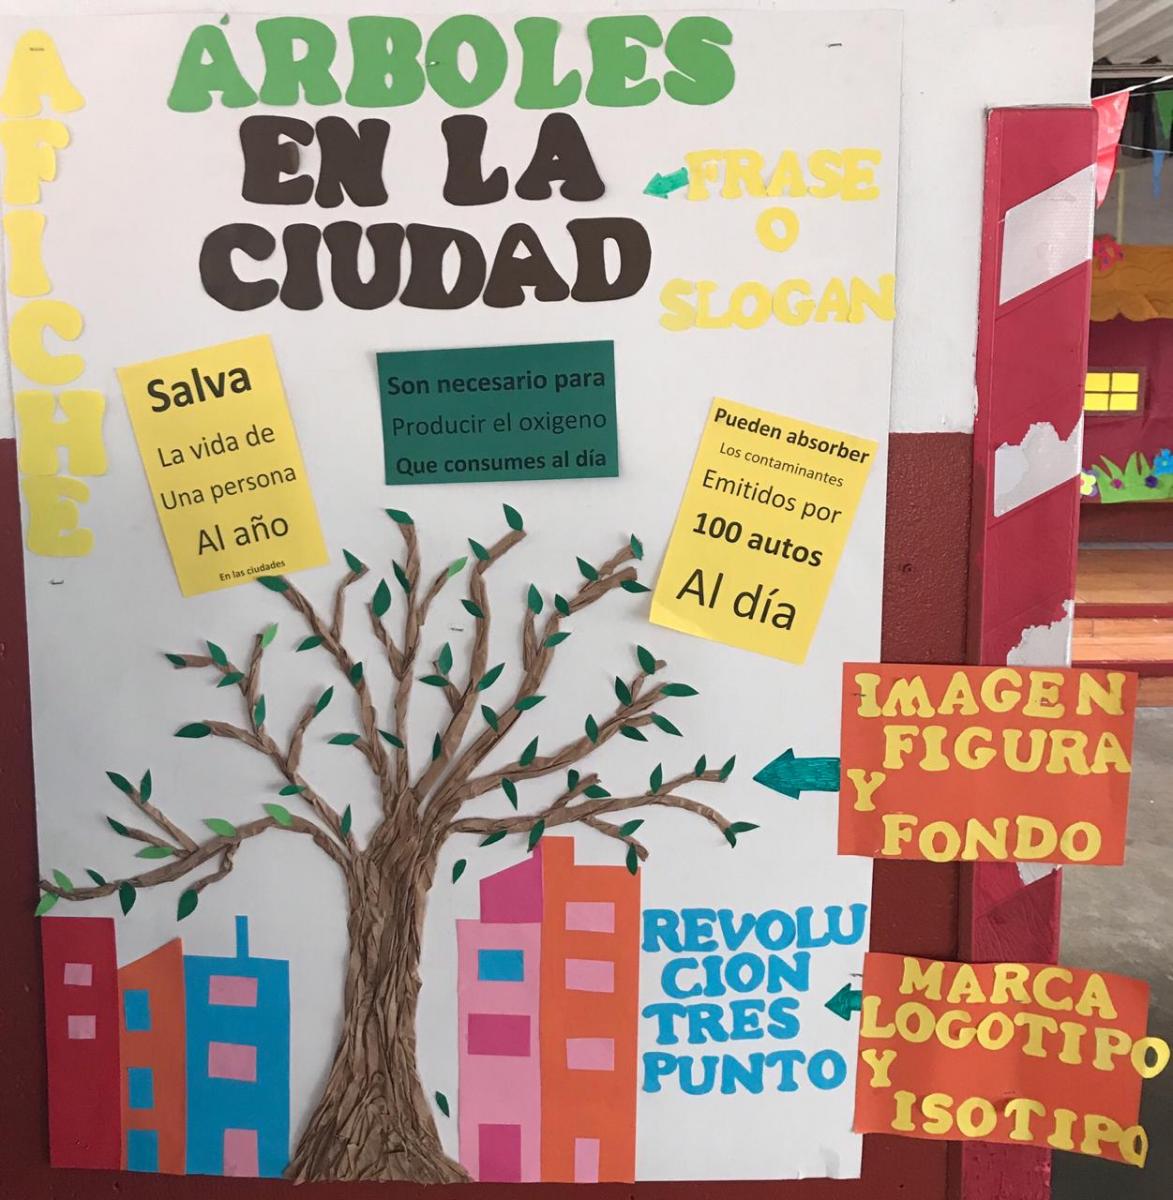 AFICHE
ÁRBOLES
EN LA
CIUDAD
FRASE
O
SLOGAN
Salva
La vida de
Una persona
Al año
En las ciudades
Son necesario para
Producir el oxigeno
Que consumes al día
Pueden absorber
Los contaminantes
Emitidos por
100 autos
Al día
IMAGEN
FIGURA
Y
FONDO
REVOLU
CION
TRES
PUNTO
MARCA
LOGOTIPO
Y
ISOTIPO